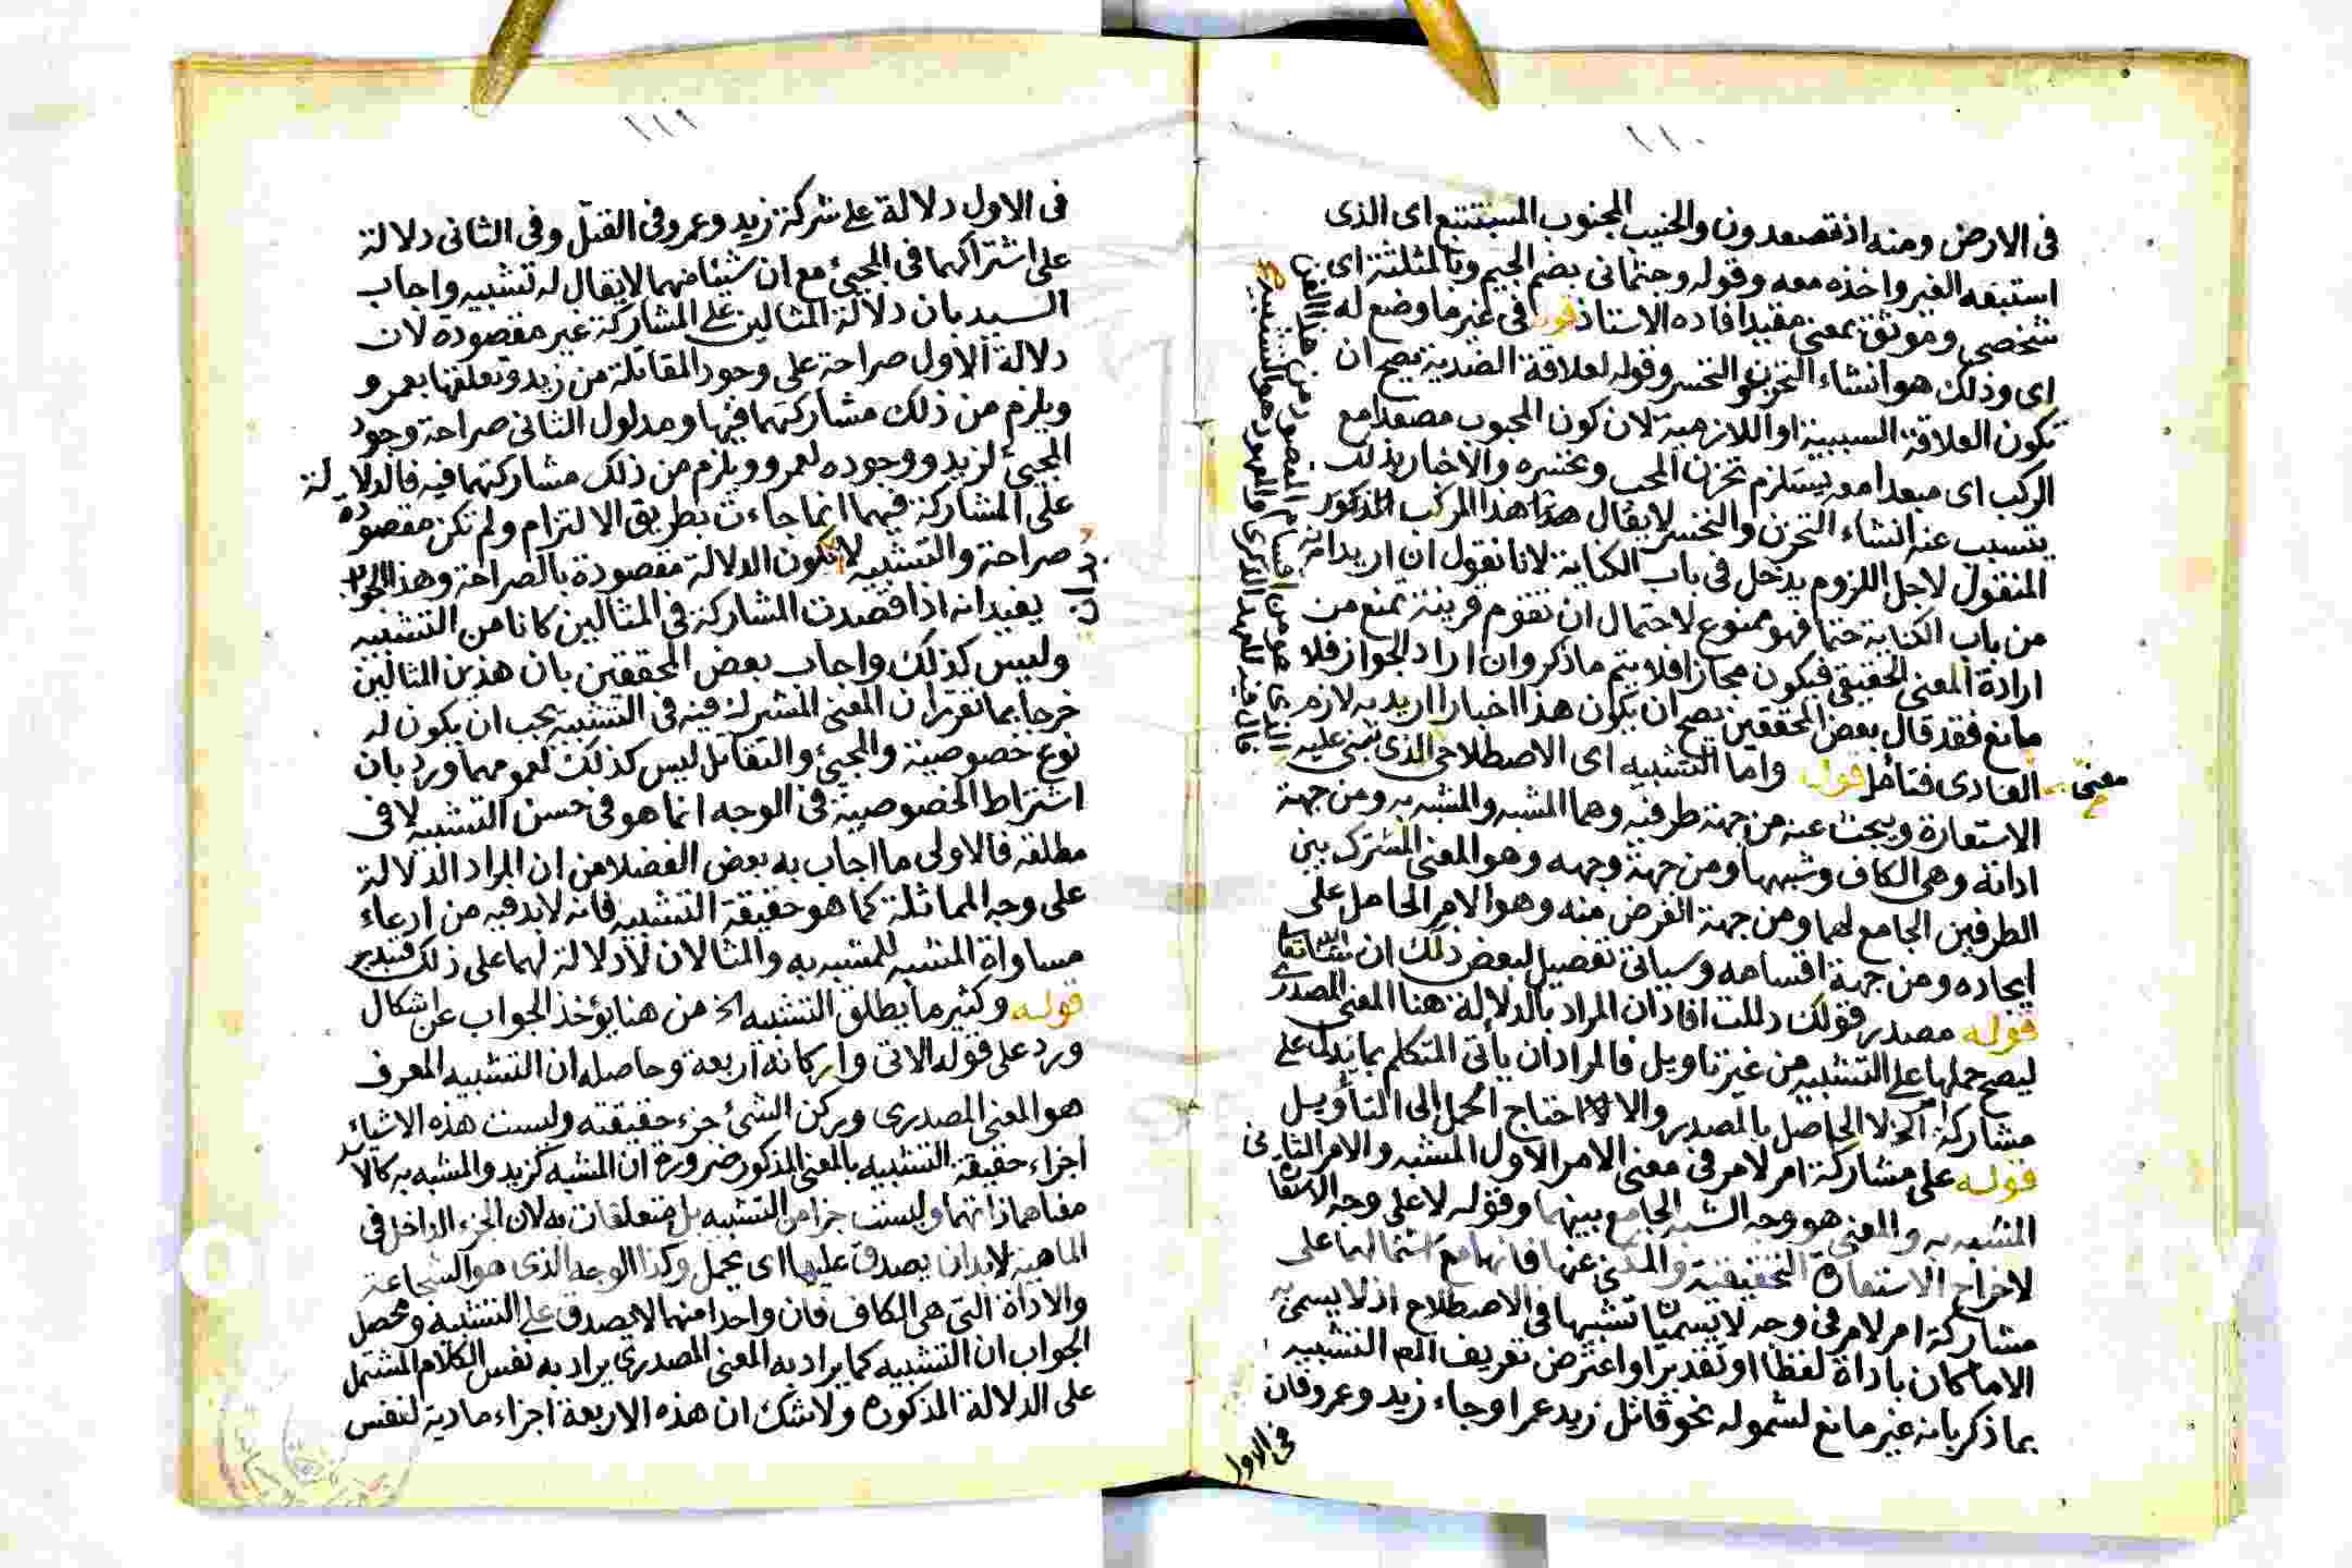 ١١٠
فى الارض ومنه اذ تصعدون والجنيب المجنوب المستتبع اى الذى
استبقه الغير واخذه معه وقوله وجثمانى بضم الجيم وبالمثلثة اى
شخصى وموثق بمعنى مقيد افاده الاستاذ قوله فى غير ما وضع له
اى وذلك هو انشاء التحزن والتحسر وقوله لعلاقة الضدية يصح ان
تكون العلاقة السببية او اللازمية لان كون المحبوب مصعدا مع
الركب اى مبعدا معه يستلزم تحزن المحب وتحسره والاخبار بذلك
يتسبب عنه انشاء التحزن والتحسر لا يقال هذا هذا المركب المذكور
المنقول لاجل اللزوم يدخل فى باب الكناية لانا نقول ان اريد انه
من باب الكناية حتما فهو ممنوع لاحتمال ان تقوم قرينة تمنع من
ارادة المعنى الحقيقى فيكون مجازا فلا يتم ما ذكر وان اراد الجواز فلا
مانع فقد قال بعض المحققين يصح ان يكون هذا اخبارا اريد به لازم
معنى
العادى فتامل قوله واما التشبيه اى الاصطلاحى الذى تبنى عليه
الاستعارة ويبحث عنه من جهة طرفيه وهما المشبه والمشبه به ومن جهة
اداته وهى الكاف وشبهها ومن جهة وجهه وهو المعنى المشترك بين
الطرفين الجامع لهما ومن جهة الغرض منه وهو الامر الحامل على
ايجاده ومن جهة اقسامه وسياتى تفصيل لبعض ذلك ان شاء الله تعالى
قوله مصدر قولك دللت افاد ان المراد بالدلالة هنا المعنى المصدرى
ليصح حملها على التشبيه من غير تاويل فالمراد ان يأتى المتكلم بما يدل على
مشاركة الخ لا الحاصل بالمصدر والا لاحتاج الحمل الى التأويل
قوله على مشاركة امر لامر فى معنى الامر الاول المشبه والامر الثانى
المشبه به والمعنى هو وجه الشبه الجامع بينهما وقوله لا على وجه الاستعارة
لاخراج الاستعارة التحقيقية والمكنى عنها فانها مع اشتمالهما على
مشاركة امر لامر فى وجه لا يسميان تشبيها فى الاصطلاح اذ لا يسمى به
الا ما كان باداة لفظا او تقديرا واعترض تعريف التشبيه
بما ذكر بانه غير مانع لشموله نحو قاتل زيد عمرا وجاء زيد وعمرو فان
فى الاول
الذى هو من اقسام المقصود من هذا الفن
فال فيه للعهد الذكرى والمعهود هو التشبيه
١١١
فى الاول دلالة على شركة زيد وعمرو فى القتل وفى الثانى دلالة
على اشتراكهما فى المجيئ مع ان شيئا منهما لا يقال له تشبيه واجاب
السيد بان دلالة المثالين على المشاركة غير مقصودة لان
دلالة الاول صراحة على وجود المقاتلة من زيد وتعلقها بعمرو
ويلزم من ذلك مشاركتهما فيها ومدلول الثانى صراحة وجود
المجيئ لزيد ووجوده لعمرو ويلزم من ذلك مشاركتهما فيه فالدلالة
على المشاركة فيهما انما جاءت بطريق الالتزام ولم تكن مقصودة
صراحة والتشبيه لا تكون الدلالة مقصودة بالصراحة وهذا الجواب
يفيد انه اذا قصدت المشاركة فى المثالين كانا من التشبيه
وليس كذلك واجاب بعض المحققين بان هذين المثالين
خرجا بما تقرر ان المعنى المشترك فيه فى التشبيه يجب ان يكون له
نوع خصوصية والمجيئ والتقاتل ليس كذلك لعمومهما ورد بان
اشتراط الخصوصية فى الوجه انما هو فى حسن التشبيه لا فى
مطلقه فالاولى ما اجاب به بعض الفضلا من ان المراد الدلالة
على وجه المماثلة كما هو حقيقة التشبيه فانه لا بد فيه من ادعاء
مساواة المشبه للمشبه به والمثالان لا دلالة لهما على ذلك فتدبر
قوله وكثير ما يطلق التشبيه الخ من هنا يؤخذ الجواب عن اشكال
ورد على قوله الاتى واركانه اربعة وحاصله ان التشبيه المعرف
هو المعنى المصدرى وركن الشئ جزء حقيقته وليست هذه الاشياء
اجزاء حقيقة التشبيه بالمعنى المذكور ضرورة ان المشبه كزيد والمشبه به كالاسد
معناهما ذاتهما وليست جزا من التشبيه بل متعلقات به لان الجزء الداخل فى
الماهية لا بد ان يصدق عليها اى يحمل وكذا الوجه الذى هو الشجاعة
والاداة التى هى الكاف فان واحدا منهما لا يصدق على التشبيه ومحصل
الجواب ان التشبيه كما يراد به المعنى المصدرى يراد به نفس الكلام المشتمل
على الدلالة المذكورة ولا شك ان هذه الاربعة اجزاء مادية لنفس